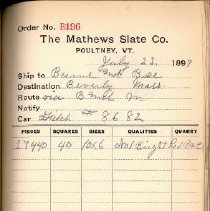 Order No. R196
The Mathews Slate Co.
POULTNEY, VT.
July 23, 1899
Ship to
Destination Beverly Mass
Route via B & M
Notify
Car 8682
PIECES SQUARES SIZES QUALITIES QUARRY
27440 40 10x6 No 1